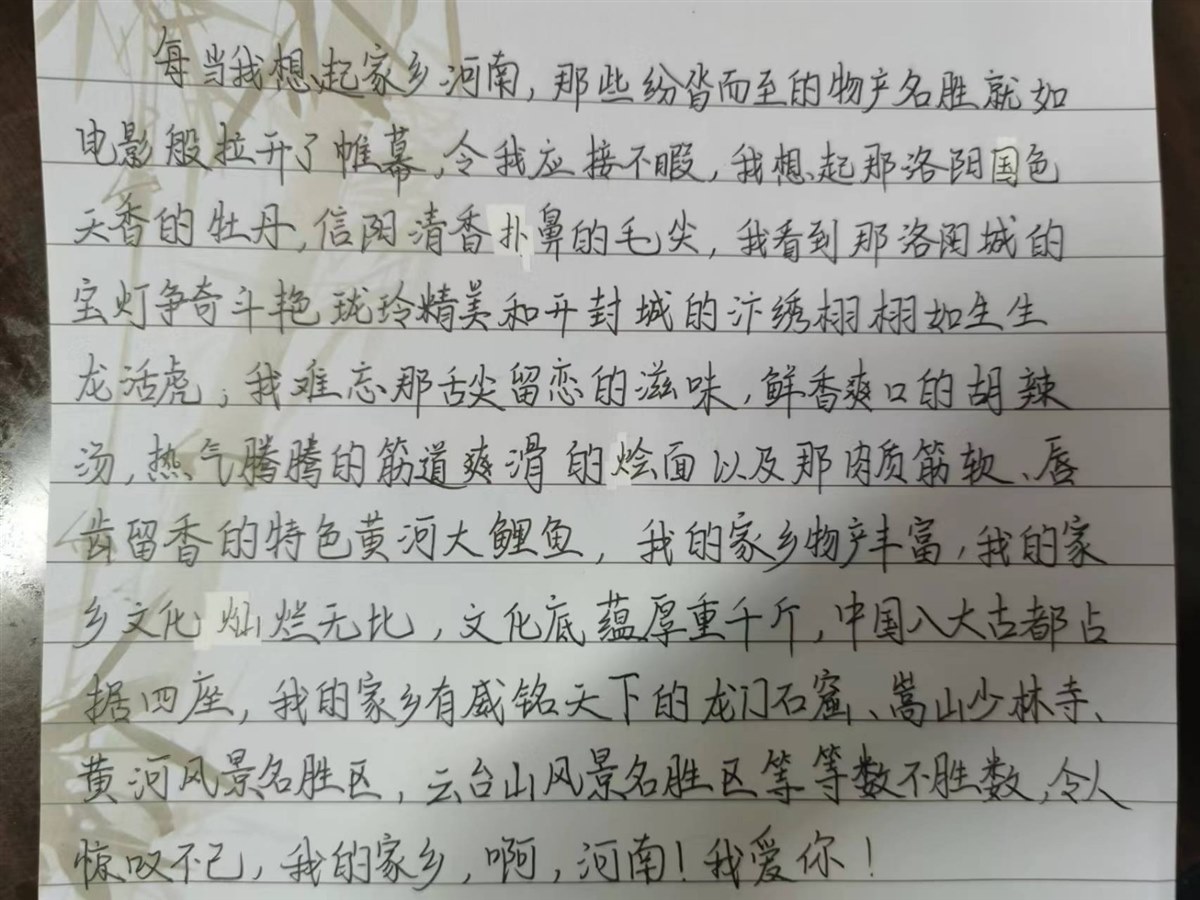 每当我想起家乡河南，那些纷沓而至的物产名胜就如
电影般拉开了帷幕，令我应接不暇，我想起那洛阳国色
天香的牡丹，信阳清香扑鼻的毛尖，我看到那洛阳城的
宝灯争奇斗艳珑玲精美和开封城的汴绣栩栩如生生
龙活虎；我难忘那舌尖留恋的滋味，鲜香爽口的胡辣
汤，热气腾腾的筋道爽滑的烩面以及那肉质筋软、唇
齿留香的特色黄河大鲤鱼，我的家乡物产丰富，我的家
乡文化灿烂无比，文化底蕴厚重千斤，中国八大古都占
据四座，我的家乡有威铭天下的龙门石窟、嵩山少林寺、
黄河风景名胜区，云台山风景名胜区等等数不胜数，令人
惊叹不已，我的家乡，啊，河南！我爱你！